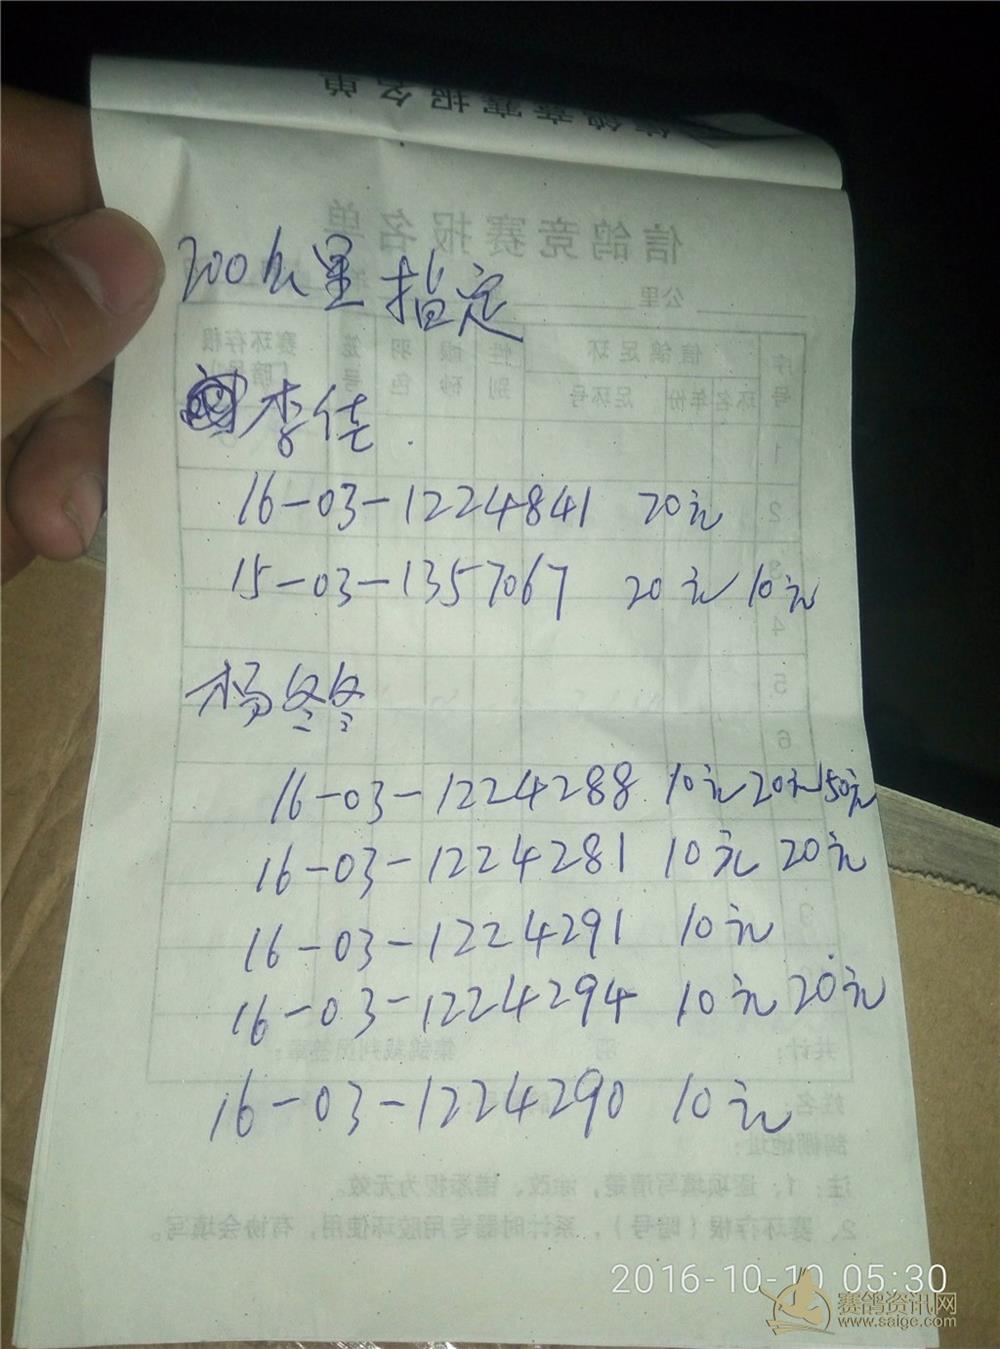 信鸽竞赛报名单
信鸽竞赛报名单
公里
300公里指定
李佳
16-03-1224841 20元
15-03-1357067 20元 10元
杨冬冬
16-03-1224288 10元 20元 50元
16-03-1224281 10元 20元
16-03-1224291 10元
16-03-1224294 10元 20元
16-03-1224290 10元
序号 信鸽足环 性别 眼砂 羽色 笼号 赛环存根
环名 年份 足环号
1
2
3
4
5
6
9
共计: 羽 集鸽裁判员签章:
姓名:
鸽棚地址:
注:1、逐项填写清楚,涂改、错添视为无效。
2、赛环存根(暗号),系计时器专用胶环使用,有协会填写。
2016-10-10 05:30
赛鸽资讯网
www.saige.com